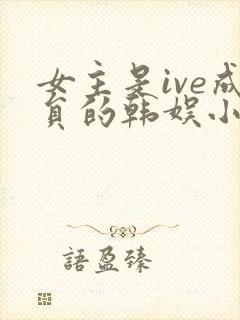 女主是ive成
员的韩娱小
語盈臻